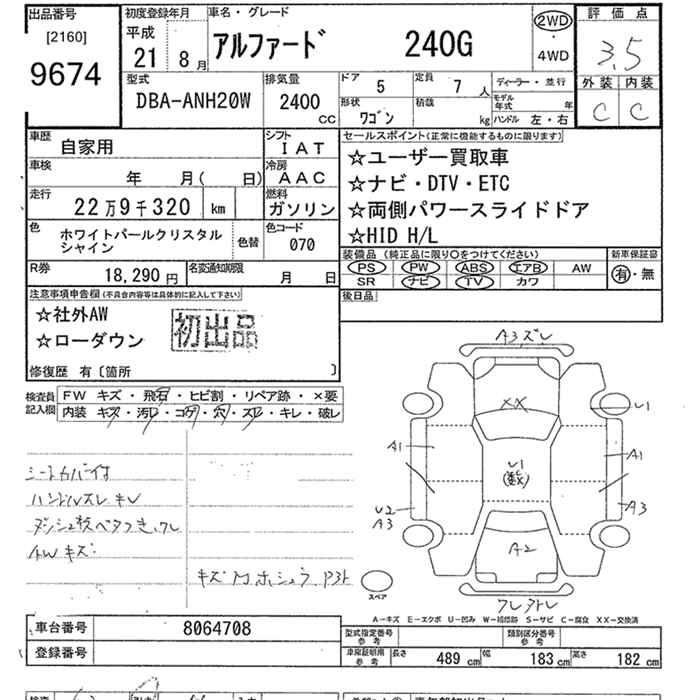 出品番号
[2160]
9674
初度登録年月
平成
21年 8月
車名・グレード
アルファード 240G
2WD
・
4WD
評価点
3.5
外装 内装
C C
型式
DBA-ANH20W
排気量
2400
cc
ドア 5
定員 7 人
形状 ワゴン
積載 kg
ディーラー・並行
モデル年式 年
ハンドル 左・右
車歴
自家用
シフト
IAT
車検
年 月( 日)
冷房
AAC
走行
22万9千320 km
燃料
ガソリン
色
ホワイトパールクリスタル
シャイン
色替
色コード
070
R券
18,290 円
名変通知期限
月 日
セールスポイント(正常に機能するものに限ります)
☆ユーザー買取車
☆ナビ・DTV・ETC
☆両側パワースライドドア
☆HID H/L
装備品(純正品に限り○をつけてください)
PS PW ABS エアB AW
SR ナビ TV カワ
新車保証書
有・無
後日品
注意事項申告欄(不具合内容等は具体的に記入して下さい)
☆社外AW
☆ローダウン
初出品
修復歴 有〔箇所 〕
検査員
記入欄
FW キズ・飛石・ヒビ割・リペア跡・×要
内装 キズ・汚レ・コゲ・穴・スレ・キレ・破レ
シートカバー付
ハンドルスレ キレ
AWキズ
A3.ズレ
××
U1
A1
U1
(数)
A1
U2
A3
A3
A2
スペア
A-キズ E-エクボ U-凹み W-補修跡 S-サビ C-腐食 XX-交換済
車台番号 8064708
登録番号
型式指定番号
参考
類別区分番号
参考
車庫証明用
参考
長さ 489 cm 幅 183 cm 高さ 182 cm